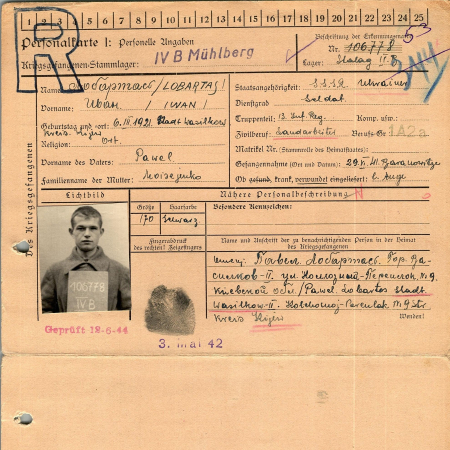 1 2 3 4 5 6 7 8 9 10 11 12 13 14 15 16 17 18 19 20 21 22 23 24 25
R
Personalkarte I: Personelle Angaben
Kriegsgefangenen-Stammlager:
IV B Mühlberg
Beschriftung der Erkennungsmarke
Nr. 106778
Lager: Stalag IV B
53
Des Kriegsgefangenen
Name: Лобартас / LOBARTAS /
Vorname: Иван / IWAN /
Geburtstag und -ort: 6.III.1921. Stadt Wasilkow
Kreis Kijew
Religion: Ort.
Vorname des Vaters: Pawel
Familienname der Mutter: Moisejenko
Staatsangehörigkeit: S.S.S.R. Ukrainer
Dienstgrad: Soldat
Truppenteil: 13. Inf. Reg. Komp. usw.:
Zivilberuf: Landarbeiter Berufs-Gr. 1A2a
Matrikel Nr. (Stammrolle des Heimatstaates):
Gefangennahme (Ort und Datum): 29.VI.41. Baranowitze
Ob gesund, krank, verwundet eingeliefert: l. Auge
Lichtbild
106778
IV B
Geprüft 12-6-44
Nähere Personalbeschreibung
N
Größe Haarfarbe
170 Schwarz
Besondere Kennzeichen:
Fingerabdruck
des rechten! Zeigefingers
3. Mai 42
Name und Anschrift der zu benachrichtigenden Person in der Heimat
des Kriegsgefangenen
Павел Лобартас. Гор. Ва-
силков-II. ул. №9.
Киевской обл. / Pawel Lobartas Stadt
Wasilkow-II. №9 Str.
Kreis Kijew
(Wenden!)